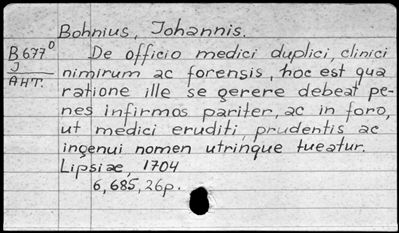 Bohnius, Johannis.
B677⁰ De officio medici duplici, clinici
J nimirum ac forensis, hoc est qua
AHT. ratione ille se gerere debeat pe-
nes infirmos pariter, ac in foro,
ut medici eruditi, prudentis ac
ingenui nomen utrinque tueatur.
Lipsiae, 1704
6,685,26p.